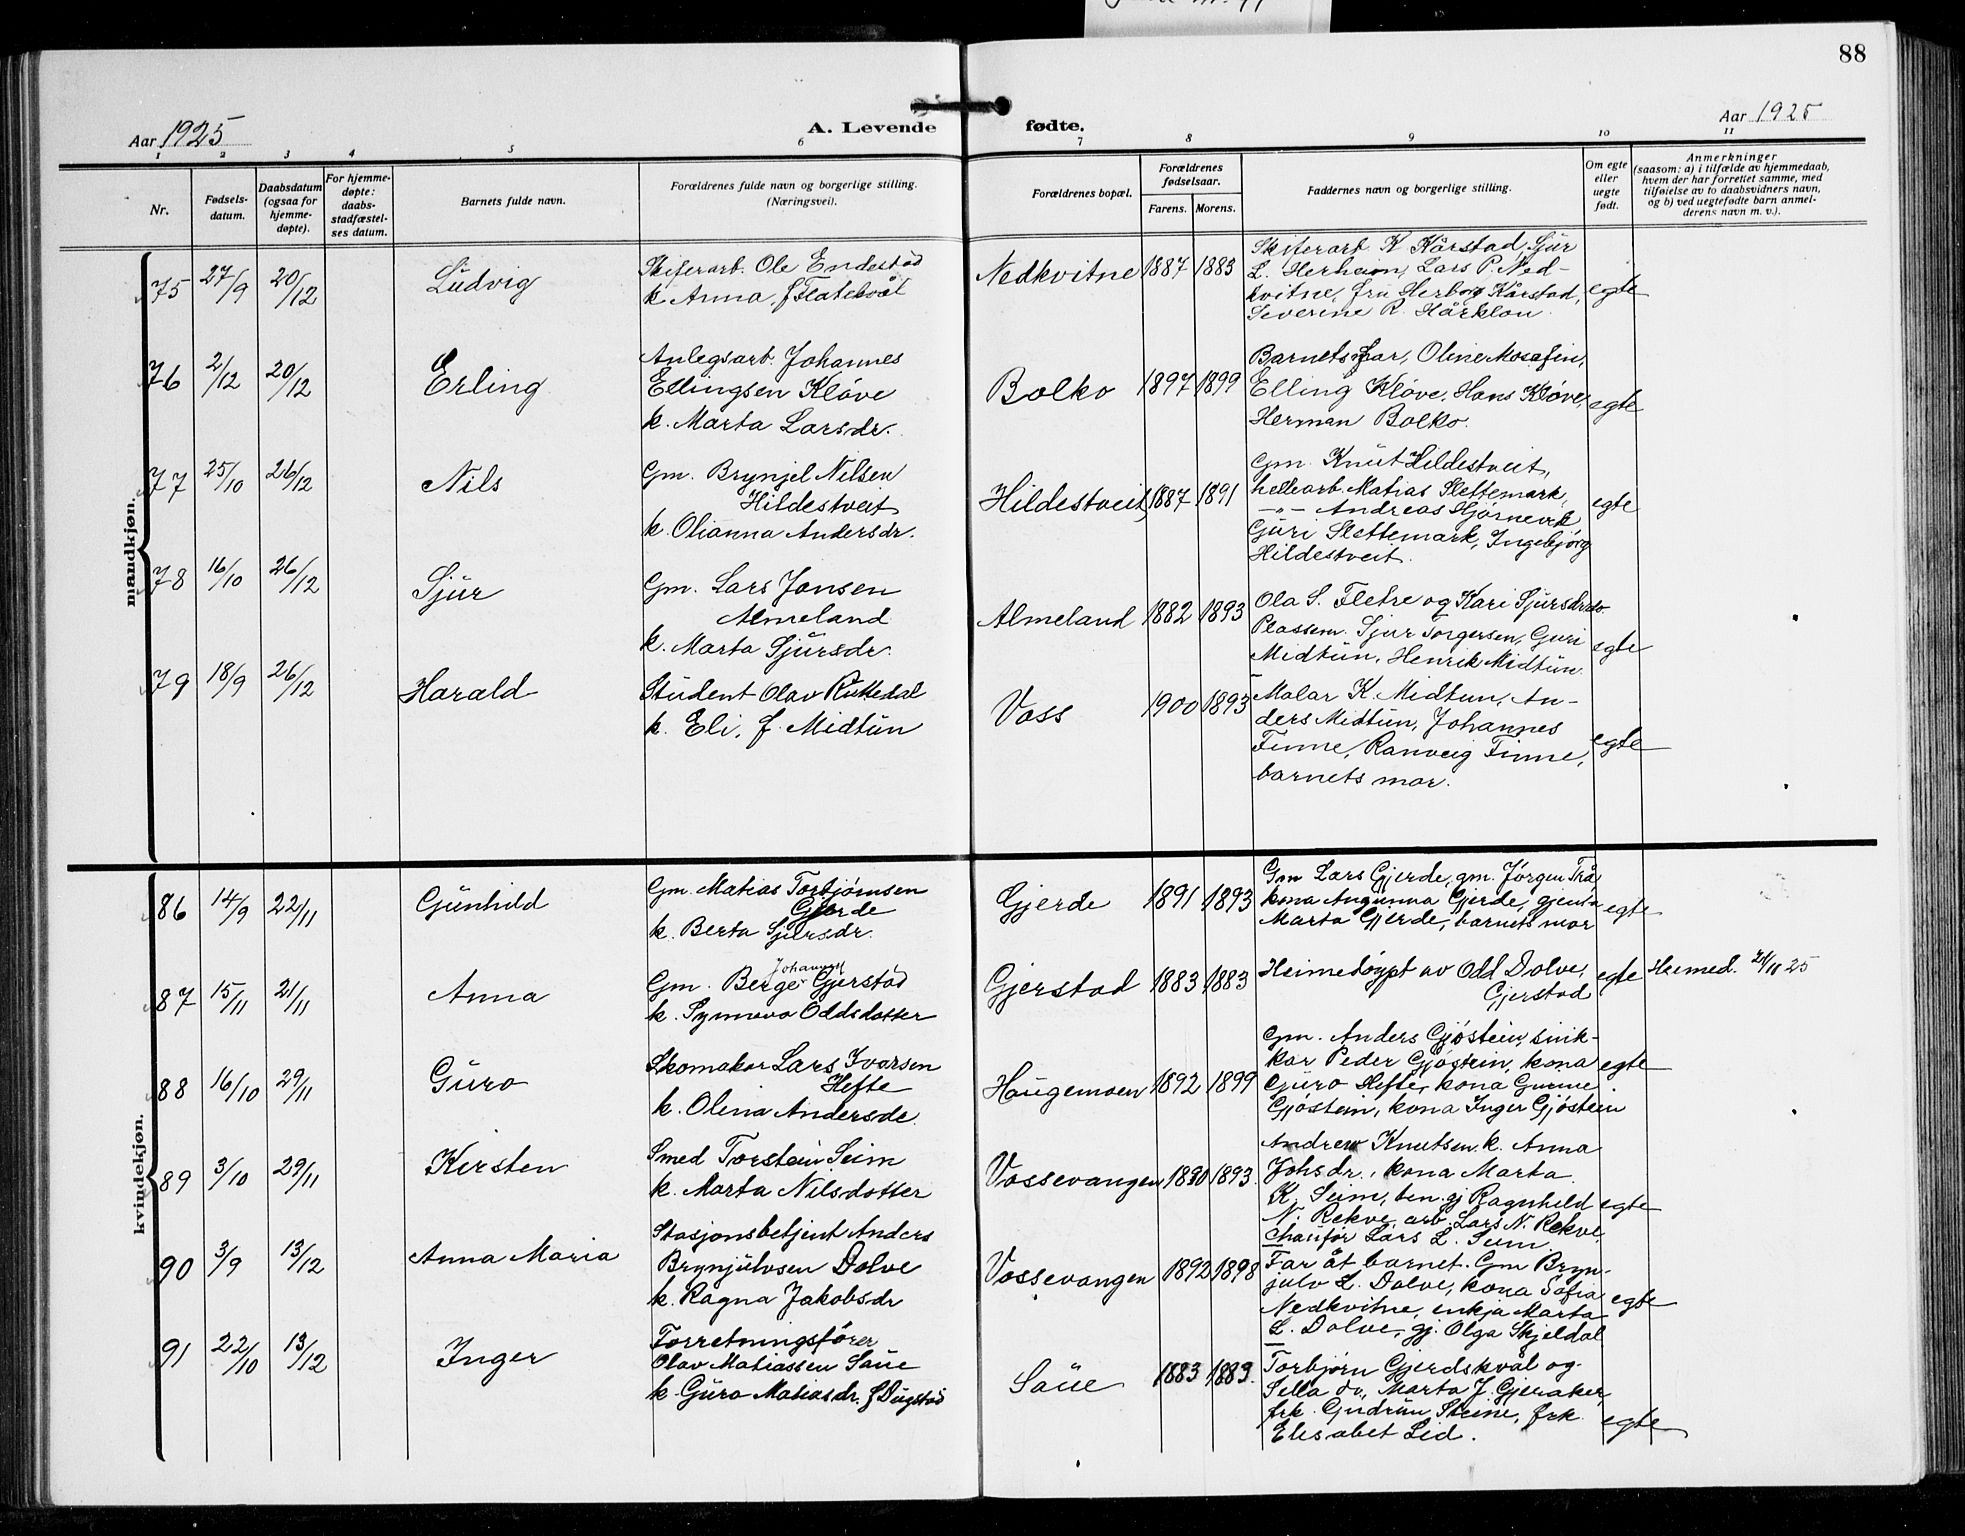 88
Aar 1925
A. Levende
fødte.
Aar 1925
1 2 3 4 5 6 7 8 9 10 11
Nr.
Fødsels-
datum.
Daabsdatum
(ogsaa for
hjemme-
døpte).
For hjemme-
døpte:
daabs-
stadfæstel-
ses datum.
Barnets fulde navn.
Forældrenes fulde navn og borgerlige stilling.
(Næringsvei).
Forældrenes bopæl.
Forældrenes
fødselsaar.
Farens. Morens.
Faddernes navn og borgerlige stilling.
Om egte
eller
uegte
født.
Anmerkninger
(saasom: a) i tilfælde av hjemmedaab,
hvem der har forrettet samme, med
tilføielse av to daabsvidners navn,
og b) ved uegtefødte barn anmel-
derens navn m. v.).
mandkjøn.
75 27/9 20/12 Ludvig
Skiferarb. Ole Endestad
k. Anna, f Flatekvål
Nedkvitne 1887 1883
Skiferarb. K Kårstad, Sjur
L. Herheim, Lars P. Ned-
kvitne, fru Herborg Kårstad,
Severine R. Hårklau
egte
76 2/12 20/12 Erling
Anlegsarb. Johannes
Ellingsen Kløve
k. Marta Larsdr.
Bolko 1897 1899
Barnets far, Oline Mosafin,
Elling Kløve, Hans Kløve,
Herman Bolko.
egte
77 25/10 26/12 Nils
Gm. Brynjel Nilsen
Hildestveit
k. Olianna Andersdr.
Hildestveit 1887 1891
Gm. Knut Hildestveit,
hellearb. Matias Slettemark,
-"- Andreas Hjørnevik,
Guri Slettemark, Ingebjørg
Hildestveit.
egte
78 16/10 26/12 Sjur
Gm. Lars Jonsen
Almeland
k. Marta Sjursdr.
Almeland 1882 1893
Ola S. Fletre og Kari Sjursdr do.
Plassem. Sjur Torgersen, Guri
Midtun, Henrik Midtun
egte
79 18/9 26/12 Harald
Student Olav Ruttedal
k. Eli, f. Midtun
Voss 1900 1893
Malar K. Midtun, An-
ders Midtun, Johannes
Finne, Ranveig Finne,
barnets mor.
egte
kvindekjøn.
86 14/9 22/11 Gunhild
Gm. Matias Torbjørnsen
Gjerde
k. Berta Sjursdr.
Gjerde 1891 1893
Gm Lars Gjerde, gm. Jørgen Trå
kona Angunna Gjerde, gjenta
Marta Gjerde, barnets mor
egte
87 15/11 21/11 Anna
Johannes
Gm. Berge Gjerstad
k. Synneva Oddsdotter
Gjerstad 1883 1883
Heimedøypt av Odd Dolve,
Gjerstad
egte Heimed. 21/11 25
88 16/10 29/11 Guro
Skomakar Lars Ivarsen
Hefte
k. Olina Andersdr.
Haugemoen 1892 1899
Gm. Anders Gjøstein, snik-
kar Peder Gjøstein, kona
Guro Hefte, kona Gunne
Gjøstein, kona Inger Gjøstein
egte
89 3/10 29/11 Kirsten
Smed Torstein Seim
k. Marta Nilsdotter
Vossevangen 1890 1893.
Andrew Knutsen k. Anna
Johsdr., kona Marta
K. Seim, ten.gj Ragnhild
N. Rekve, arb. Lars N. Rekve,
chaufør Lars L. Seim.
egte
90 3/9 13/12 Anna Maria
Stasjonsbetjent Anders
Brynjulvsen Dolve
k. Ragna Jakobsdr
Vossevangen 1892 1898
Far åt barnet. Gm Bryn-
julv L. Dolve, kona Sofia
Nedkvitne, enkja Marta
L. Dolve, gj. Olga Skjeldal
egte
91 22/10 13/12 Inger
Forretningsfører
Olav Matiassen Saue
k. Guro Matiasdr. f Dugstad
Saue 1883 1883.
Torbjørn Gjerdskvål og
Sella do, Marta J. Gjeraker,
frk. Gudrun Steine, frk.
Elisabet Lid.
egte